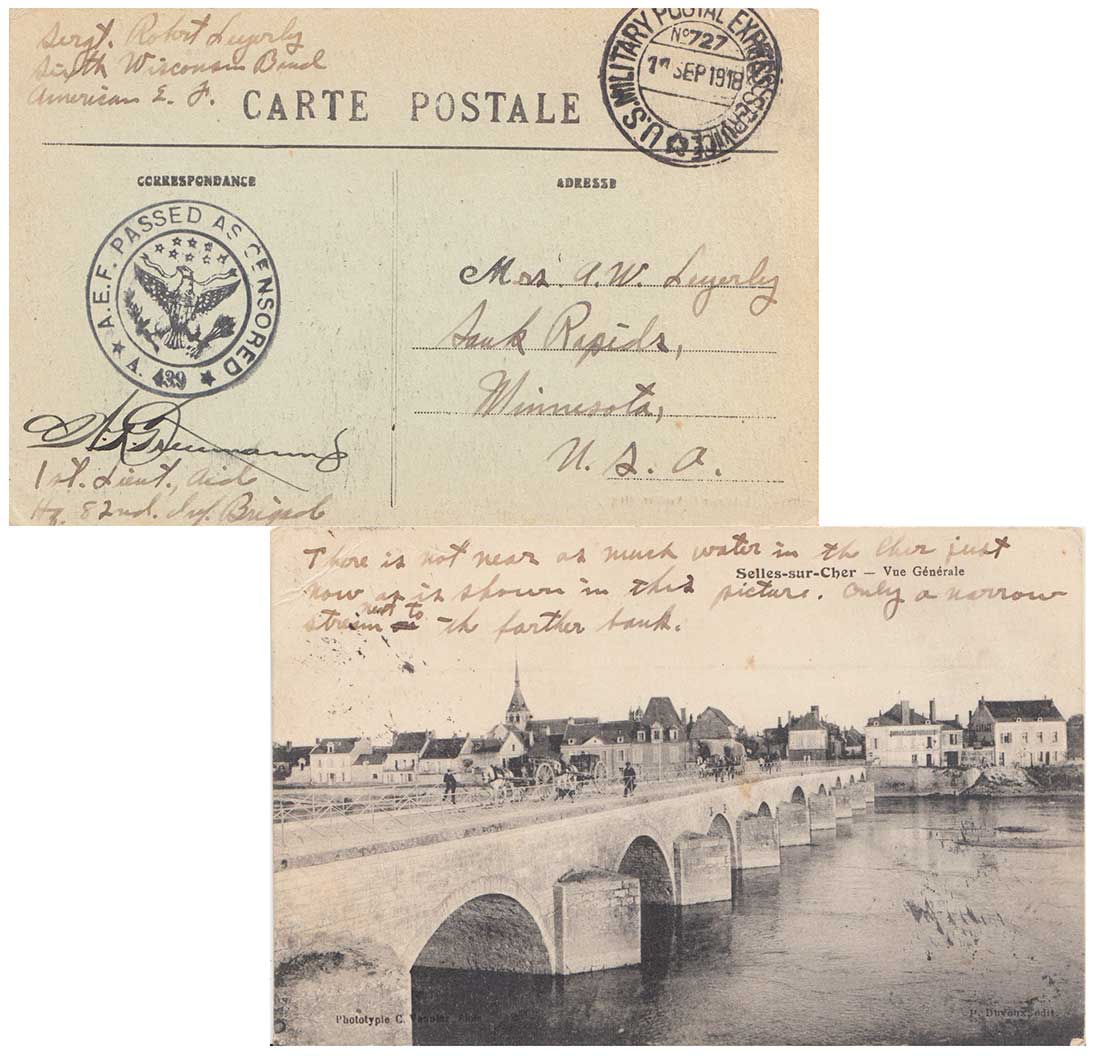 Sergt. Robert Luyerly
Sixth Wisconsin Band
American E. F.
CARTE POSTALE
U.S. MILITARY POSTAL EXPRESS SERVICE
No 727
SEP 1918
CORRESPONDANCE
ADRESSE
A.E.F. PASSED AS CENSORED
A. 439
Mrs. A. W. Luyerly
Sauk Rapids,
Minnesota,
U. S. A.
1st. Lieut., Aid
Hq. 82nd. Inf. Brigade
There is not near as much water in the Cher just
Selles-sur-Cher — Vue Générale
now as is shown in this picture. Only a narrow
stream next to the farther bank.
Phototypie C.
P. Duvoux, edit